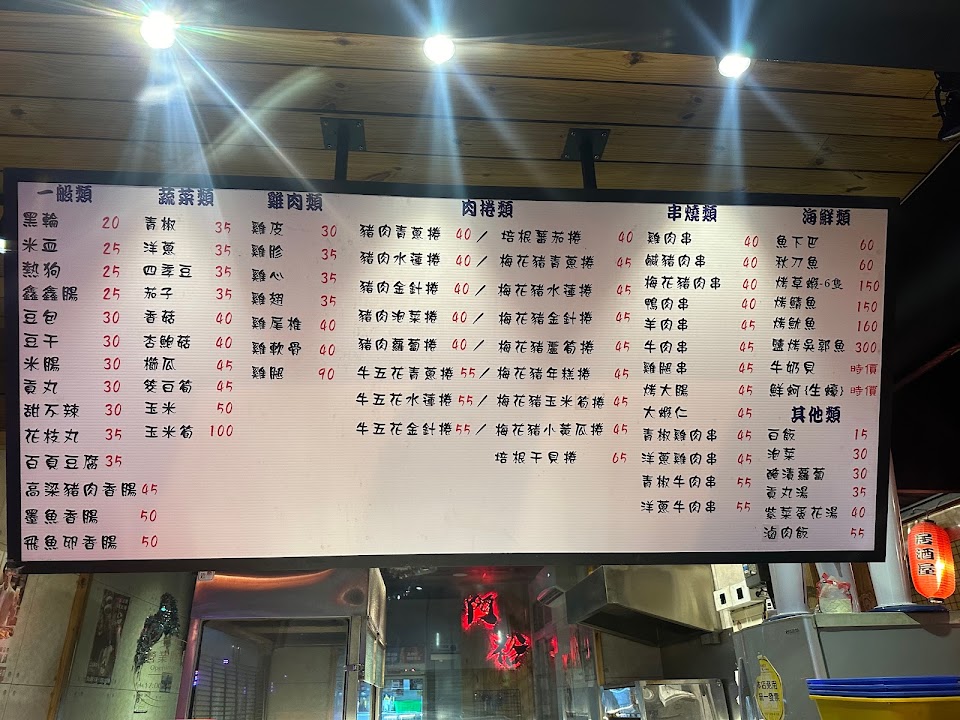 一般類
黑輪 20
米血 25
熱狗 25
鑫鑫腸 25
豆包 30
豆干 30
米腸 30
貢丸 30
甜不辣 30
花枝丸 35
百頁豆腐 35
高梁豬肉香腸 45
墨魚香腸 50
飛魚卵香腸 50
蔬菜類
青椒 35
洋蔥 35
四季豆 35
茄子 35
香菇 40
杏鮑菇 40
櫛瓜 45
筊白筍 45
玉米 50
玉米筍 100
雞肉類
雞皮 30
雞胗 35
雞心 35
雞翅 35
雞尾椎 40
雞軟骨 40
雞腿 90
肉捲類
豬肉青蔥捲 40 / 培根蕃茄捲 40
豬肉水蓮捲 40 / 梅花豬青蔥捲 45
豬肉金針捲 40 / 梅花豬水蓮捲 45
豬肉泡菜捲 40 / 梅花豬金針捲 45
豬肉蘿蔔捲 40 / 梅花豬蘆筍捲 45
牛五花青蔥捲 55 / 梅花豬年糕捲 45
牛五花水蓮捲 55 / 梅花豬玉米筍捲 45
牛五花金針捲 55 / 梅花豬小黃瓜捲 45
培根干貝捲 65
串燒類
雞肉串 40
鹹豬肉串 40
梅花豬肉串 40
鴨肉串 40
羊肉串 45
牛肉串 45
雞腿串 45
烤大腸 45
大蝦仁 45
青椒雞肉串 45
洋蔥雞肉串 45
青椒牛肉串 55
洋蔥牛肉串 55
海鮮類
魚下巴 60
秋刀魚 60
烤草蝦-6隻 150
烤鯖魚 150
烤魷魚 160
鹽烤吳郭魚 300
牛奶貝 時價
鮮蚵(生蠔) 時價
其他類
白飯 15
泡菜 30
醃漬蘿蔔 30
貢丸湯 35
紫菜蛋花湯 40
滷肉飯 55
居酒屋